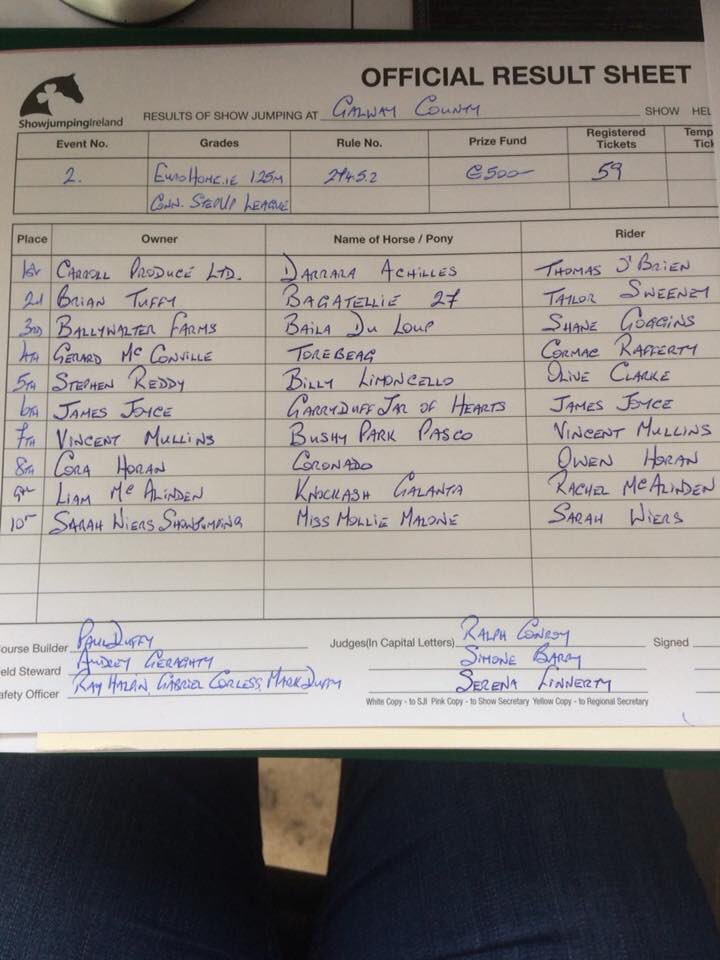 OFFICIAL RESULT SHEET
ShowjumpingIreland
RESULTS OF SHOW JUMPING AT GALWAY COUNTY SHOW HEL
Event No. Grades Rule No. Prize Fund Registered Tickets Temp Tick
2. EuroHome.ie 125m 274.5.2 €500- 59
Conn. StepUp League
Place Owner Name of Horse / Pony Rider
1st Carroll Produce Ltd. Darrara Achilles Thomas O'Brien
2nd Brian Tuffy Bagatellie 27 Taylor Sweeney
3rd Ballywalter Farms Baila Du Loup Shane Goggins
4th Gerard McConville Torebeag Cormac Rafferty
5th Stephen Reddy Billy Limoncello Olive Clarke
6th James Joyce Garryduff Jar of Hearts James Joyce
7th Vincent Mullins Bushy Park Pasco Vincent Mullins
8th Cora Horan Coronado Owen Horan
9th Liam McAlinden Knockash Galanta Rachel McAlinden
10th Sarah Wiers Showjumping Miss Mollie Malone Sarah Wiers
ourse Builder Paul Duffy Judges(In Capital Letters) Ralph Conroy Signed
eld Steward Audrey Geraghty Simone Barry
afety Officer Ray Halin, Gabriel Corless, Mark Duffy Serena Finnerty
White Copy - to SJI Pink Copy - to Show Secretary Yellow Copy - to Regional Secretary